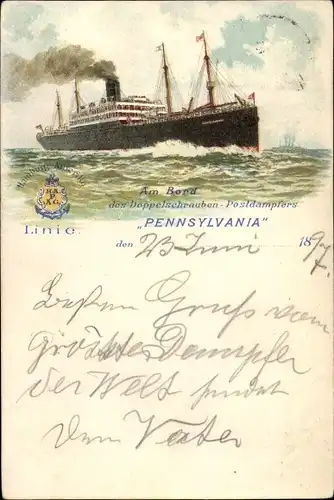 Hamburg-Amerika
H.A.
P.
A.G.
Linie.
Am Bord
des Doppelschrauben-Postdampfers
„PENNSYLVANIA"
den 23 Juni 1897.
Besten Gruss vom
grösster Dampfer
der Welt sendet
Dein Vater